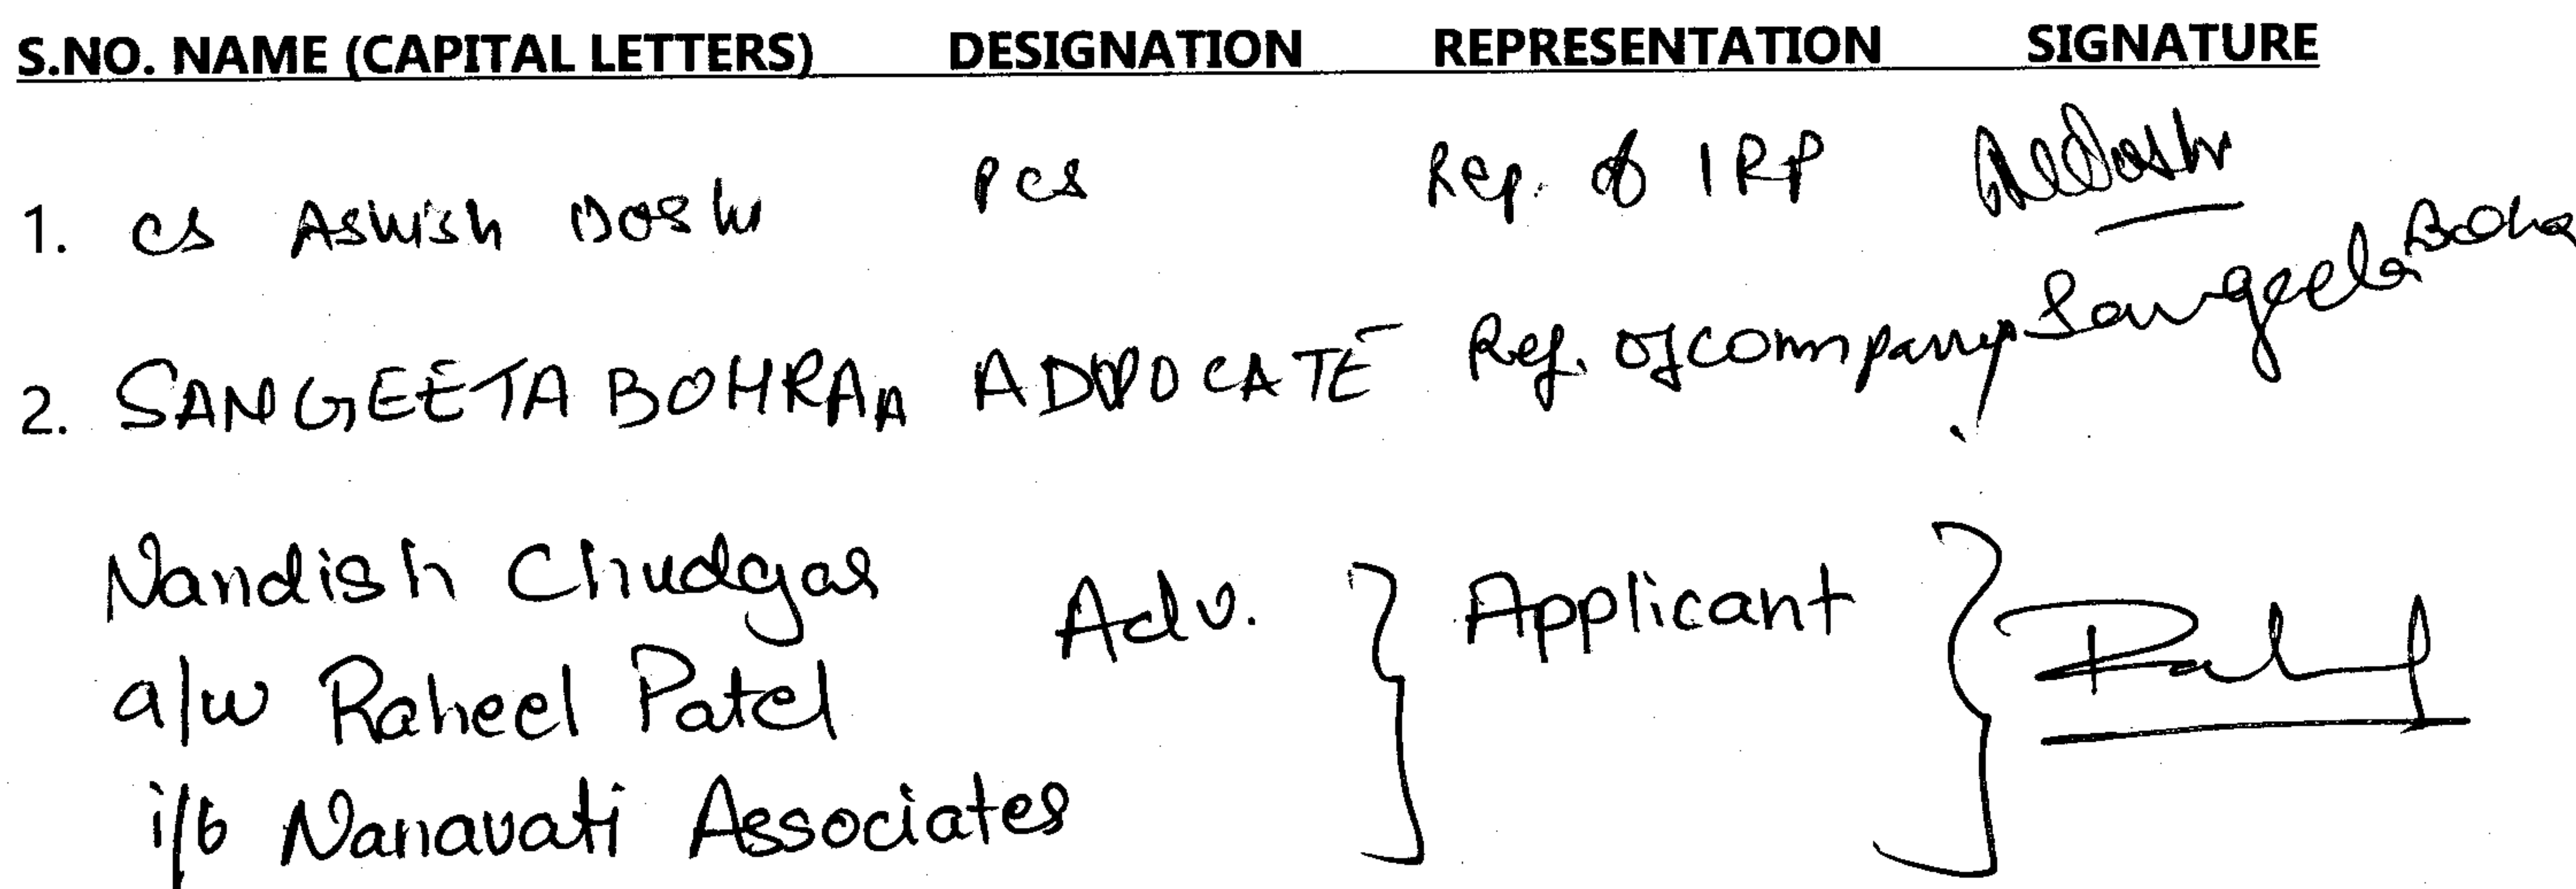 S.NO. NAME (CAPITAL LETTERS) DESIGNATION REPRESENTATION SIGNATURE
1. CS Ashish Doshi PCS Rep. of IRP
2. SANGEETA BOHRA ADVOCATE Rep. of company Sangeeta Bohra
Nandish Chudgar Adv. } Applicant }
a/w Raheel Patel
i/b Nanavati Associates